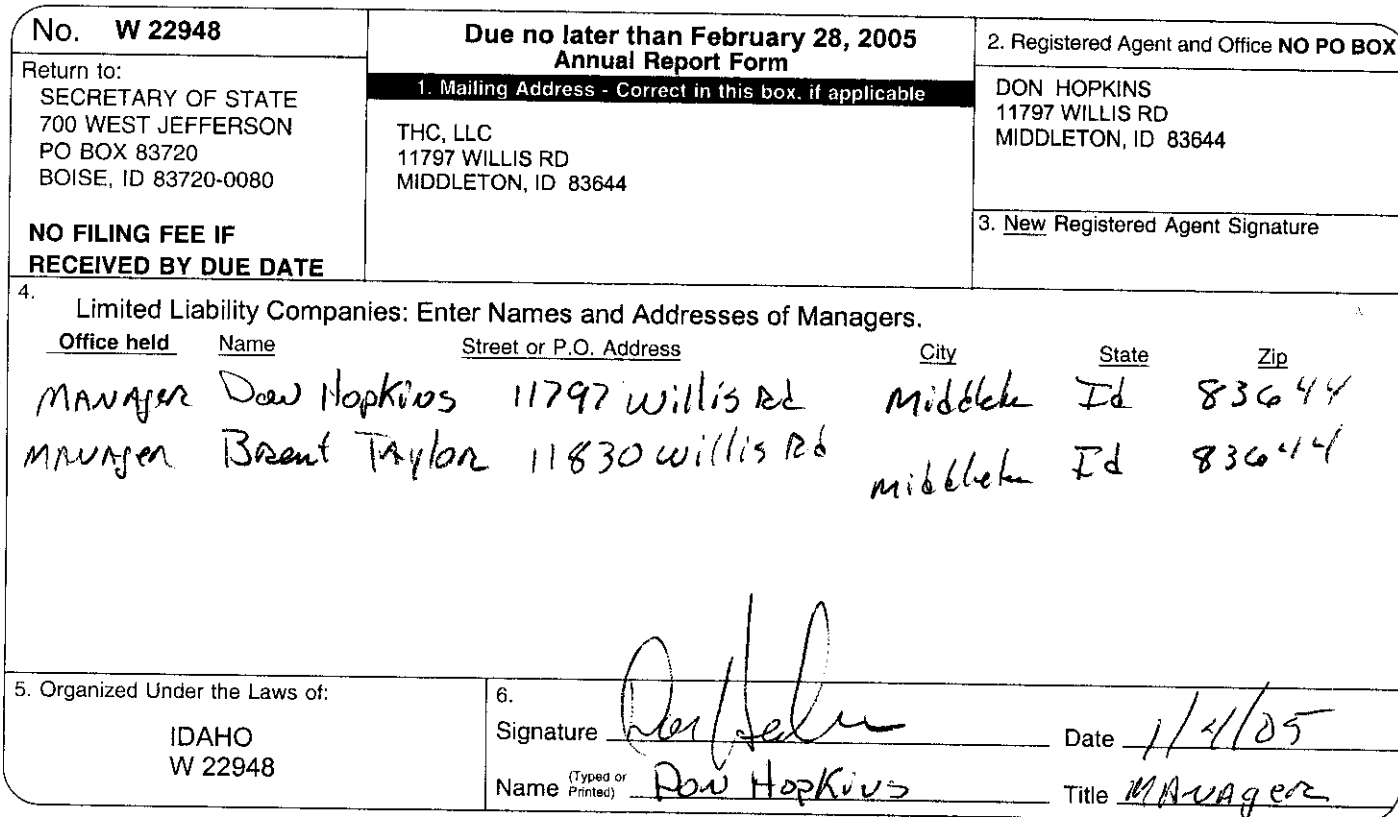 No. W 22948
Return to:
SECRETARY OF STATE
700 WEST JEFFERSON
PO BOX 83720
BOISE, ID 83720-0080
NO FILING FEE IF
RECEIVED BY DUE DATE
Due no later than February 28, 2005
Annual Report Form
1. Mailing Address - Correct in this box, if applicable
THC, LLC
11797 WILLIS RD
MIDDLETON, ID 83644
2. Registered Agent and Office NO PO BOX
DON HOPKINS
11797 WILLIS RD
MIDDLETON, ID 83644
3. New Registered Agent Signature
4.
Limited Liability Companies: Enter Names and Addresses of Managers.
Office held Name Street or P.O. Address City State Zip
MANAger Don HopKins 11797 Willis Rd Middleton Id 83644
MANAger Brent TAylor 11830 Willis Rd middleton Id 83644
5. Organized Under the Laws of:
IDAHO
W 22948
6.
Signature Date 1/4/05
Name (Typed or Printed) Don HopKins Title MANAger